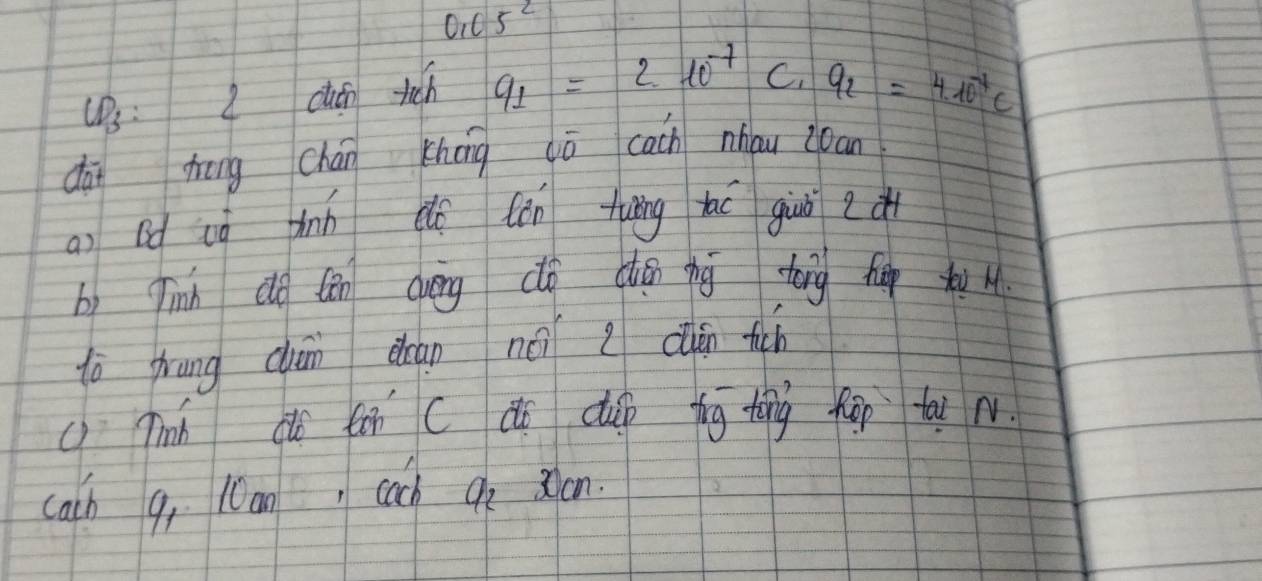 0,05²
VD3: 2 điện tích q₁ = 2.10⁻⁷ C, q₂ = 4.10⁻⁷ C
đặt trong chân không và cách nhau 20cm.
a) Bd và tính độ lớn tương tác giữa 2 đt
b) Tính độ lớn cường độ điện trg tổng hợp tại M.
là trung điểm đoạn nối 2 điện tích
c) Tính độ lớn C độ điện trg tổng hợp tại N.
cách q₁ 10cm, cách q₂ 30cm.